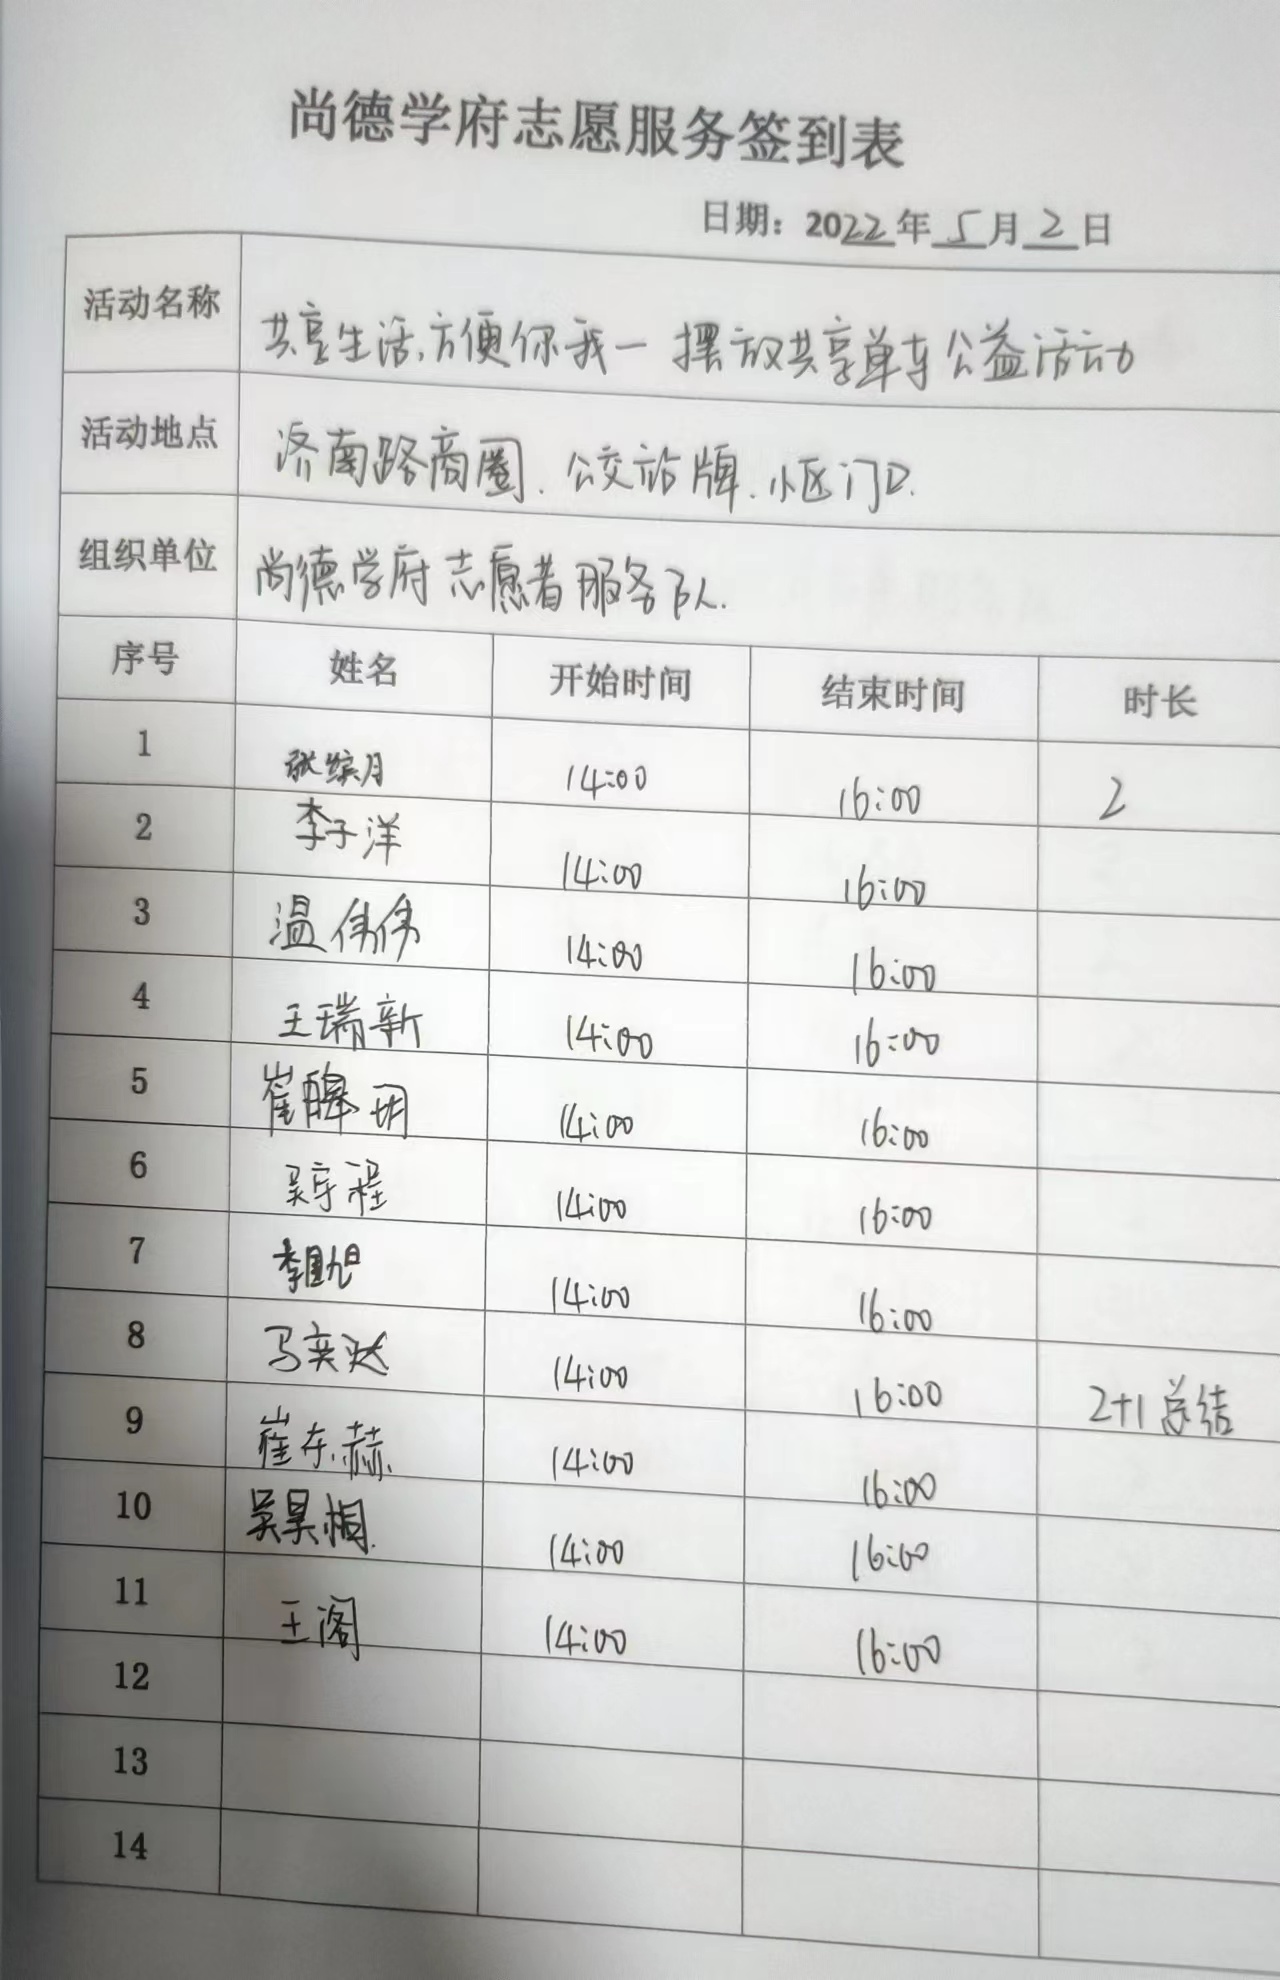 尚德学府志愿服务签到表
日期：2022年5月2日
活动名称 共享生活、方便你我一 摆放共享单车公益活动
活动地点 济南路商圈、公交站牌、小区门口.
组织单位 尚德学府志愿者服务队.
序号 姓名 开始时间 结束时间 时长
1 张缤月 14:00 16:00 2
2 李子洋 14:00 16:00
3 温伟伟 14:00 16:00
4 王瑞新 14:00 16:00
5 崔 14:00 16:00
6 吴宇程 14:00 16:00
7 李 14:00 16:00
8 马奕 14:00 16:00 2+1总结
9 崔东赫 14:00 16:00
10 吴昊桐 14:00 16:00
11 王阁 14:00 16:00
12
13
14